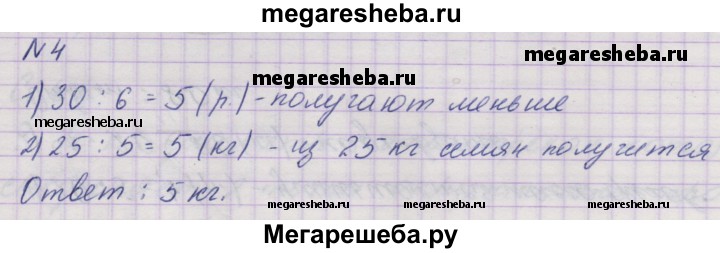 megaresheba.ru
N 4
megaresheba.ru
1) 30 : 6 = 5 (р.) - получают меньше
megaresheba.ru
2) 25 : 5 = 5 (кг) - из 25 кг семян получится
Ответ : 5 кг.
megaresheba.ru
megaresheba.ru
Мегарешеба.ру